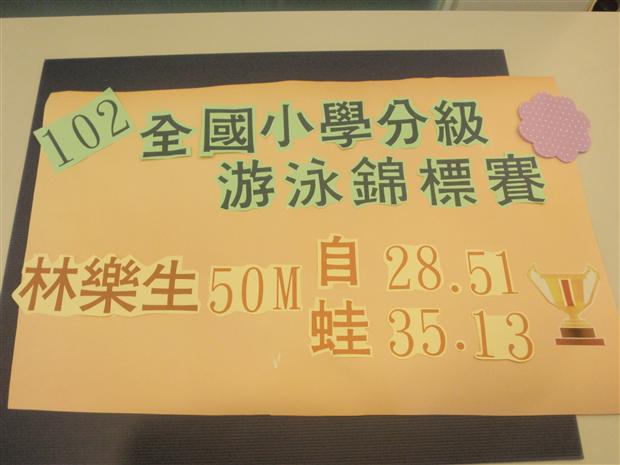 102 全國小學分級
游泳錦標賽
林樂生 50M 自 28.51
蛙 35.13